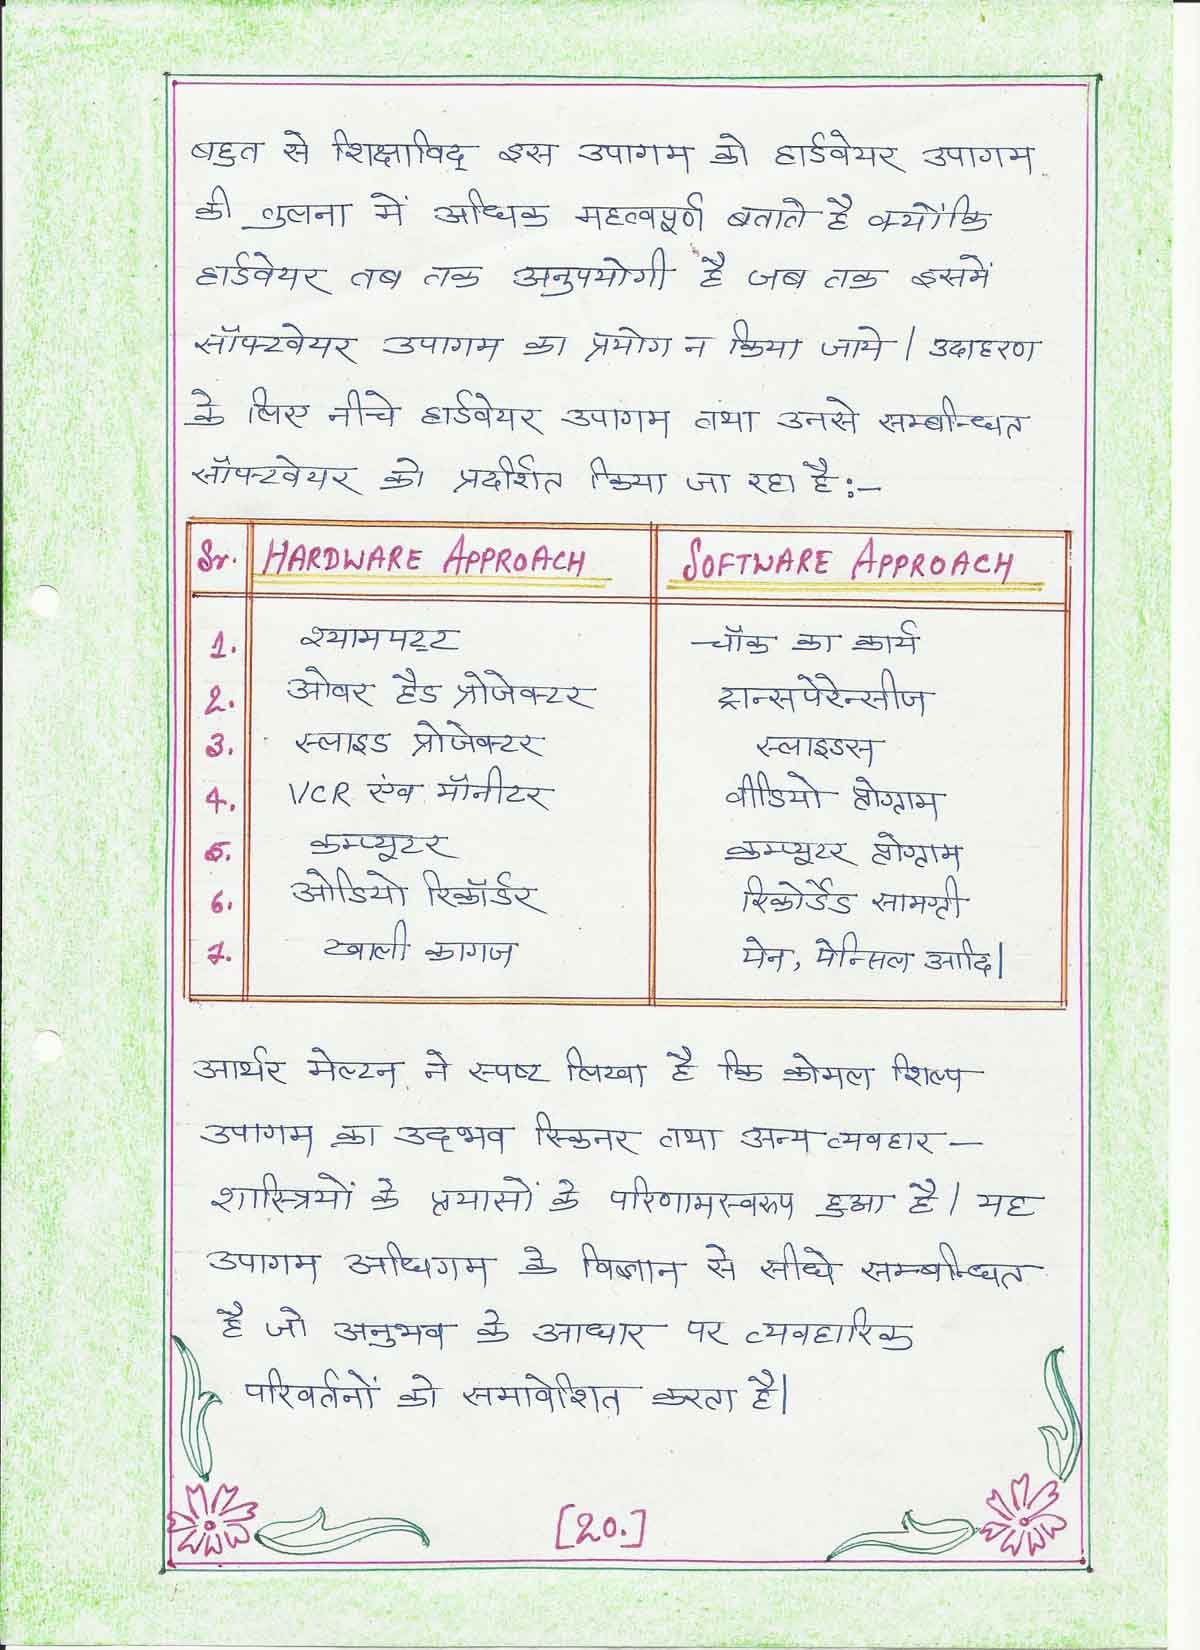 बहुत से शिक्षाविद् इस उपागम को हार्डवेयर उपागम
की तुलना में अधिक महत्वपूर्ण बताते है क्योंकि
हार्डवेयर तब तक अनुपयोगी है जब तक इसमें
सॉफ्टवेयर उपागम का प्रयोग न किया जाये। उदाहरण
के लिए नीचे हार्डवेयर उपागम तथा उनसे सम्बन्धित
सॉफ्टवेयर को प्रदर्शित किया जा रहा है:-
Sr. HARDWARE APPROACH SOFTWARE APPROACH
1. श्यामपट्ट चॉक का कार्य
2. ओवर हैड प्रोजेक्टर ट्रान्सपेरेन्सीज
3. स्लाइड प्रोजेक्टर स्लाइडस
4. VCR एंव मॉनीटर वीडियो प्रोग्राम
5. कम्प्यूटर कम्प्यूटर प्रोग्राम
6. ओडियो रिकॉर्डर रिकोर्डेड सामग्री
7. खाली कागज पेन, पेन्सिल आदि।
आर्थर मेल्टन ने स्पष्ट लिखा है कि कोमल शिल्प
उपागम का उद्भव स्किनर तथा अन्य व्यवहार -
शास्त्रियों के प्रयासों के परिणामस्वरुप हुआ है। यह
उपागम अधिगम के विज्ञान से सीधे सम्बन्धित
है जो अनुभव के आधार पर व्यवहारिक
परिवर्तनों को समावेशित करता है।
[20.]